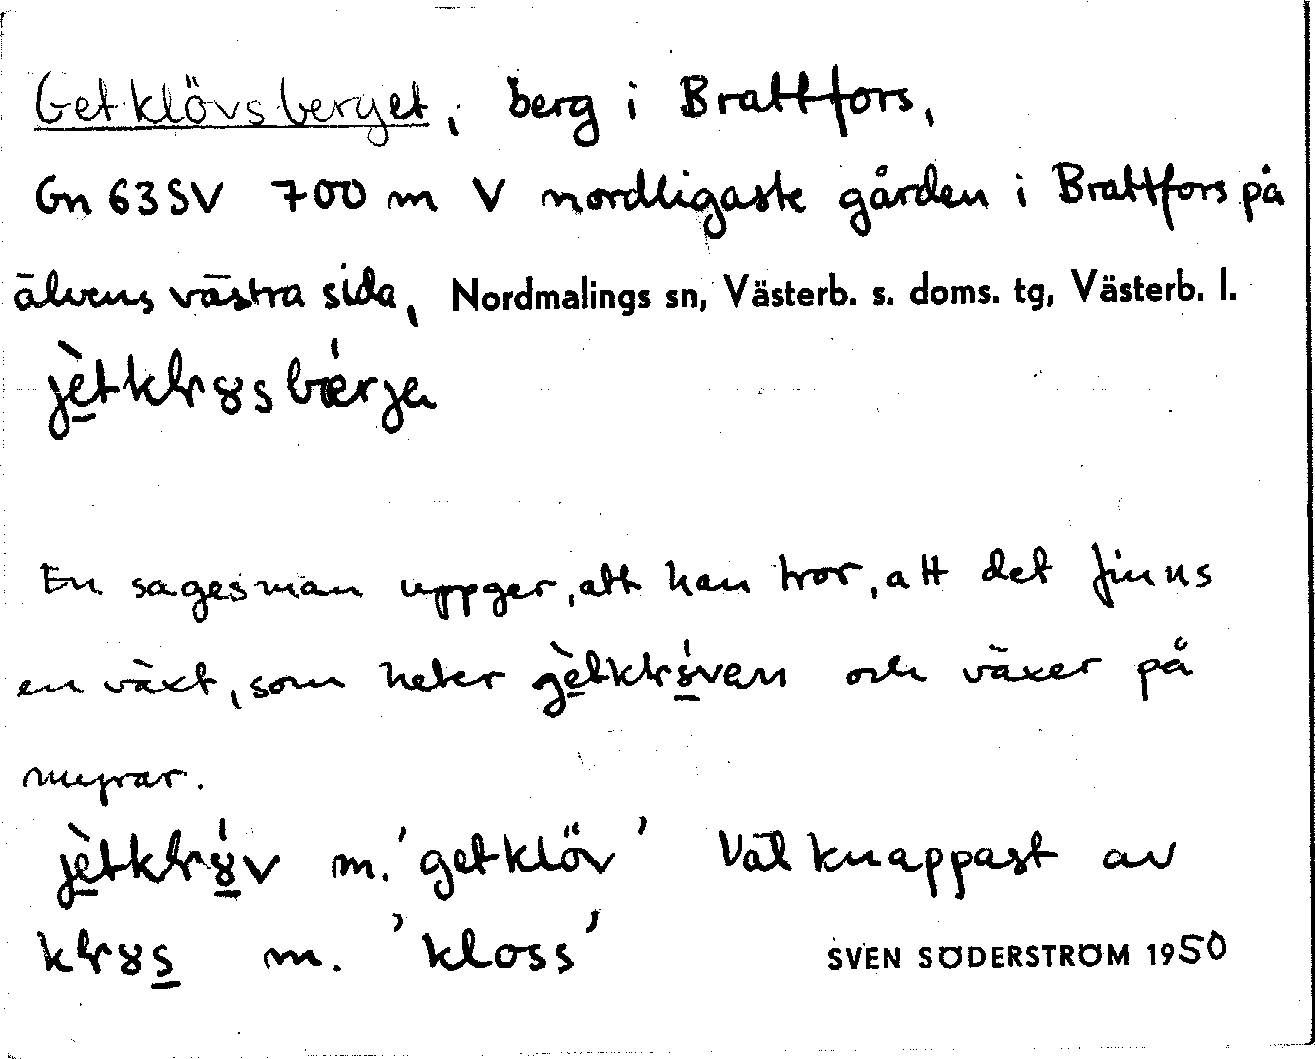 Getklövsberget, berg i Brattfors,
Gn 63SV 700 m V nordligaste gården i Brattfors på
älvens västra sida, Nordmalings sn, Västerb. s. doms. tg, Västerb. l.
En sagesman uppger, att han tror, att det finns
en växt, som heter och växer på
myrar.
m. 'getklöv' Väl knappast av
m. 'kloss' SVEN SÖDERSTRÖM 1950